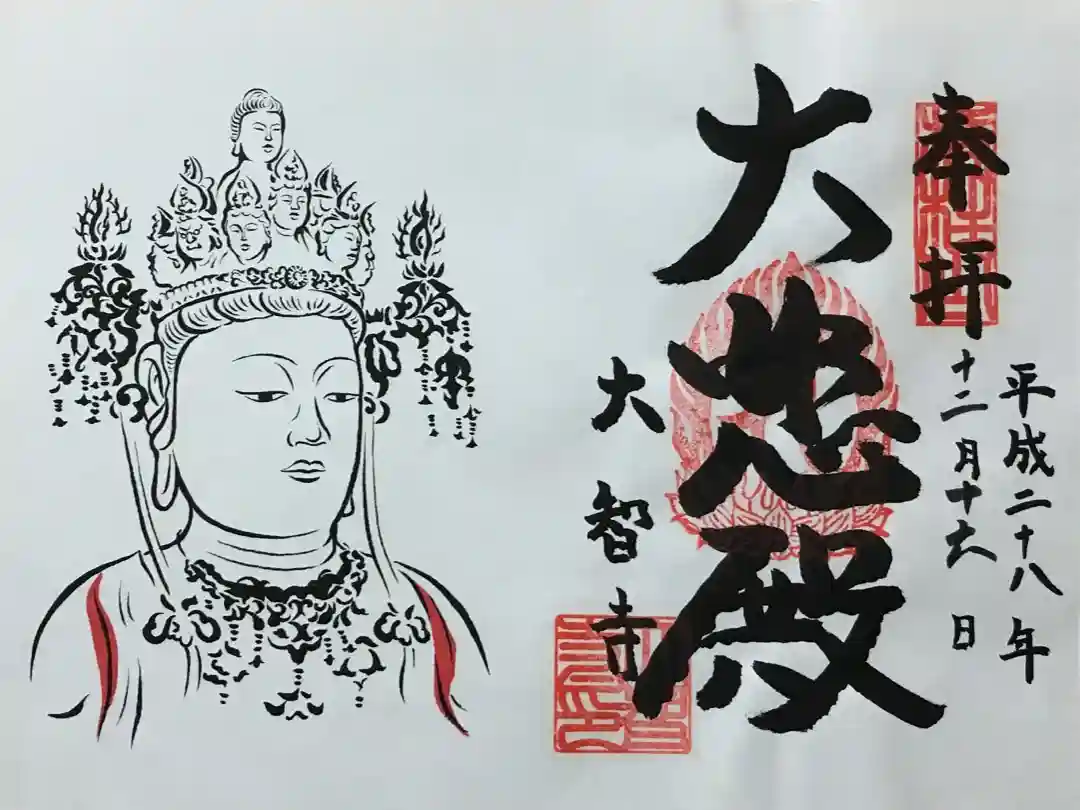 奉拝
平成二十八年
十二月十六日
大悲殿
大智寺